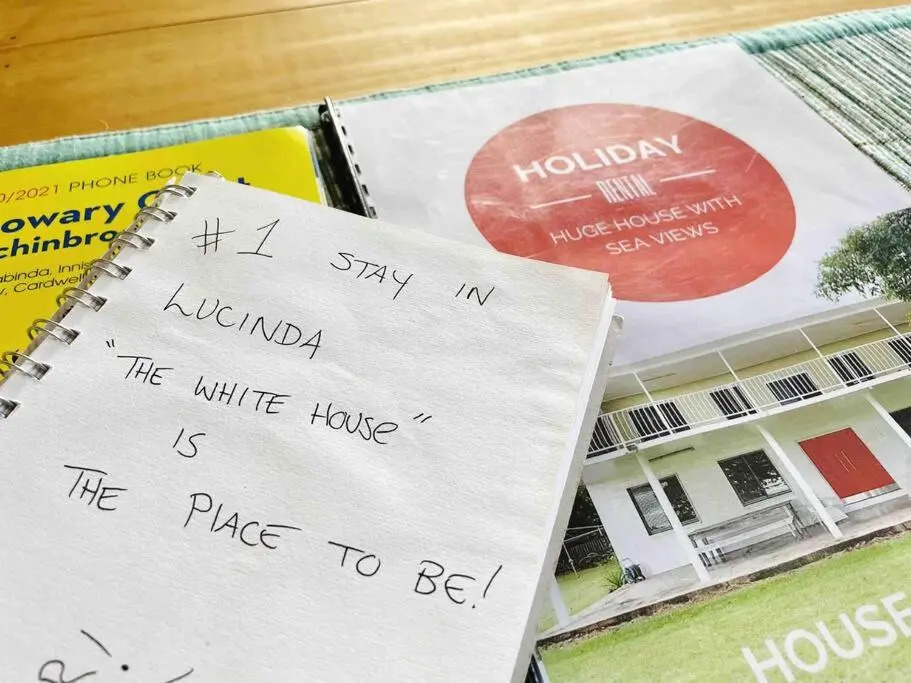 0/2021 PHONE BOOK
owary C
chinbro
abinda, Innis
, Cardwell
#1 STAY IN
LUCINDA
"THE WHITE HOUSE"
IS
THE PLACE TO BE!
HOLIDAY
RENTAL
HUGE HOUSE WITH
SEA VIEWS
HOUSE